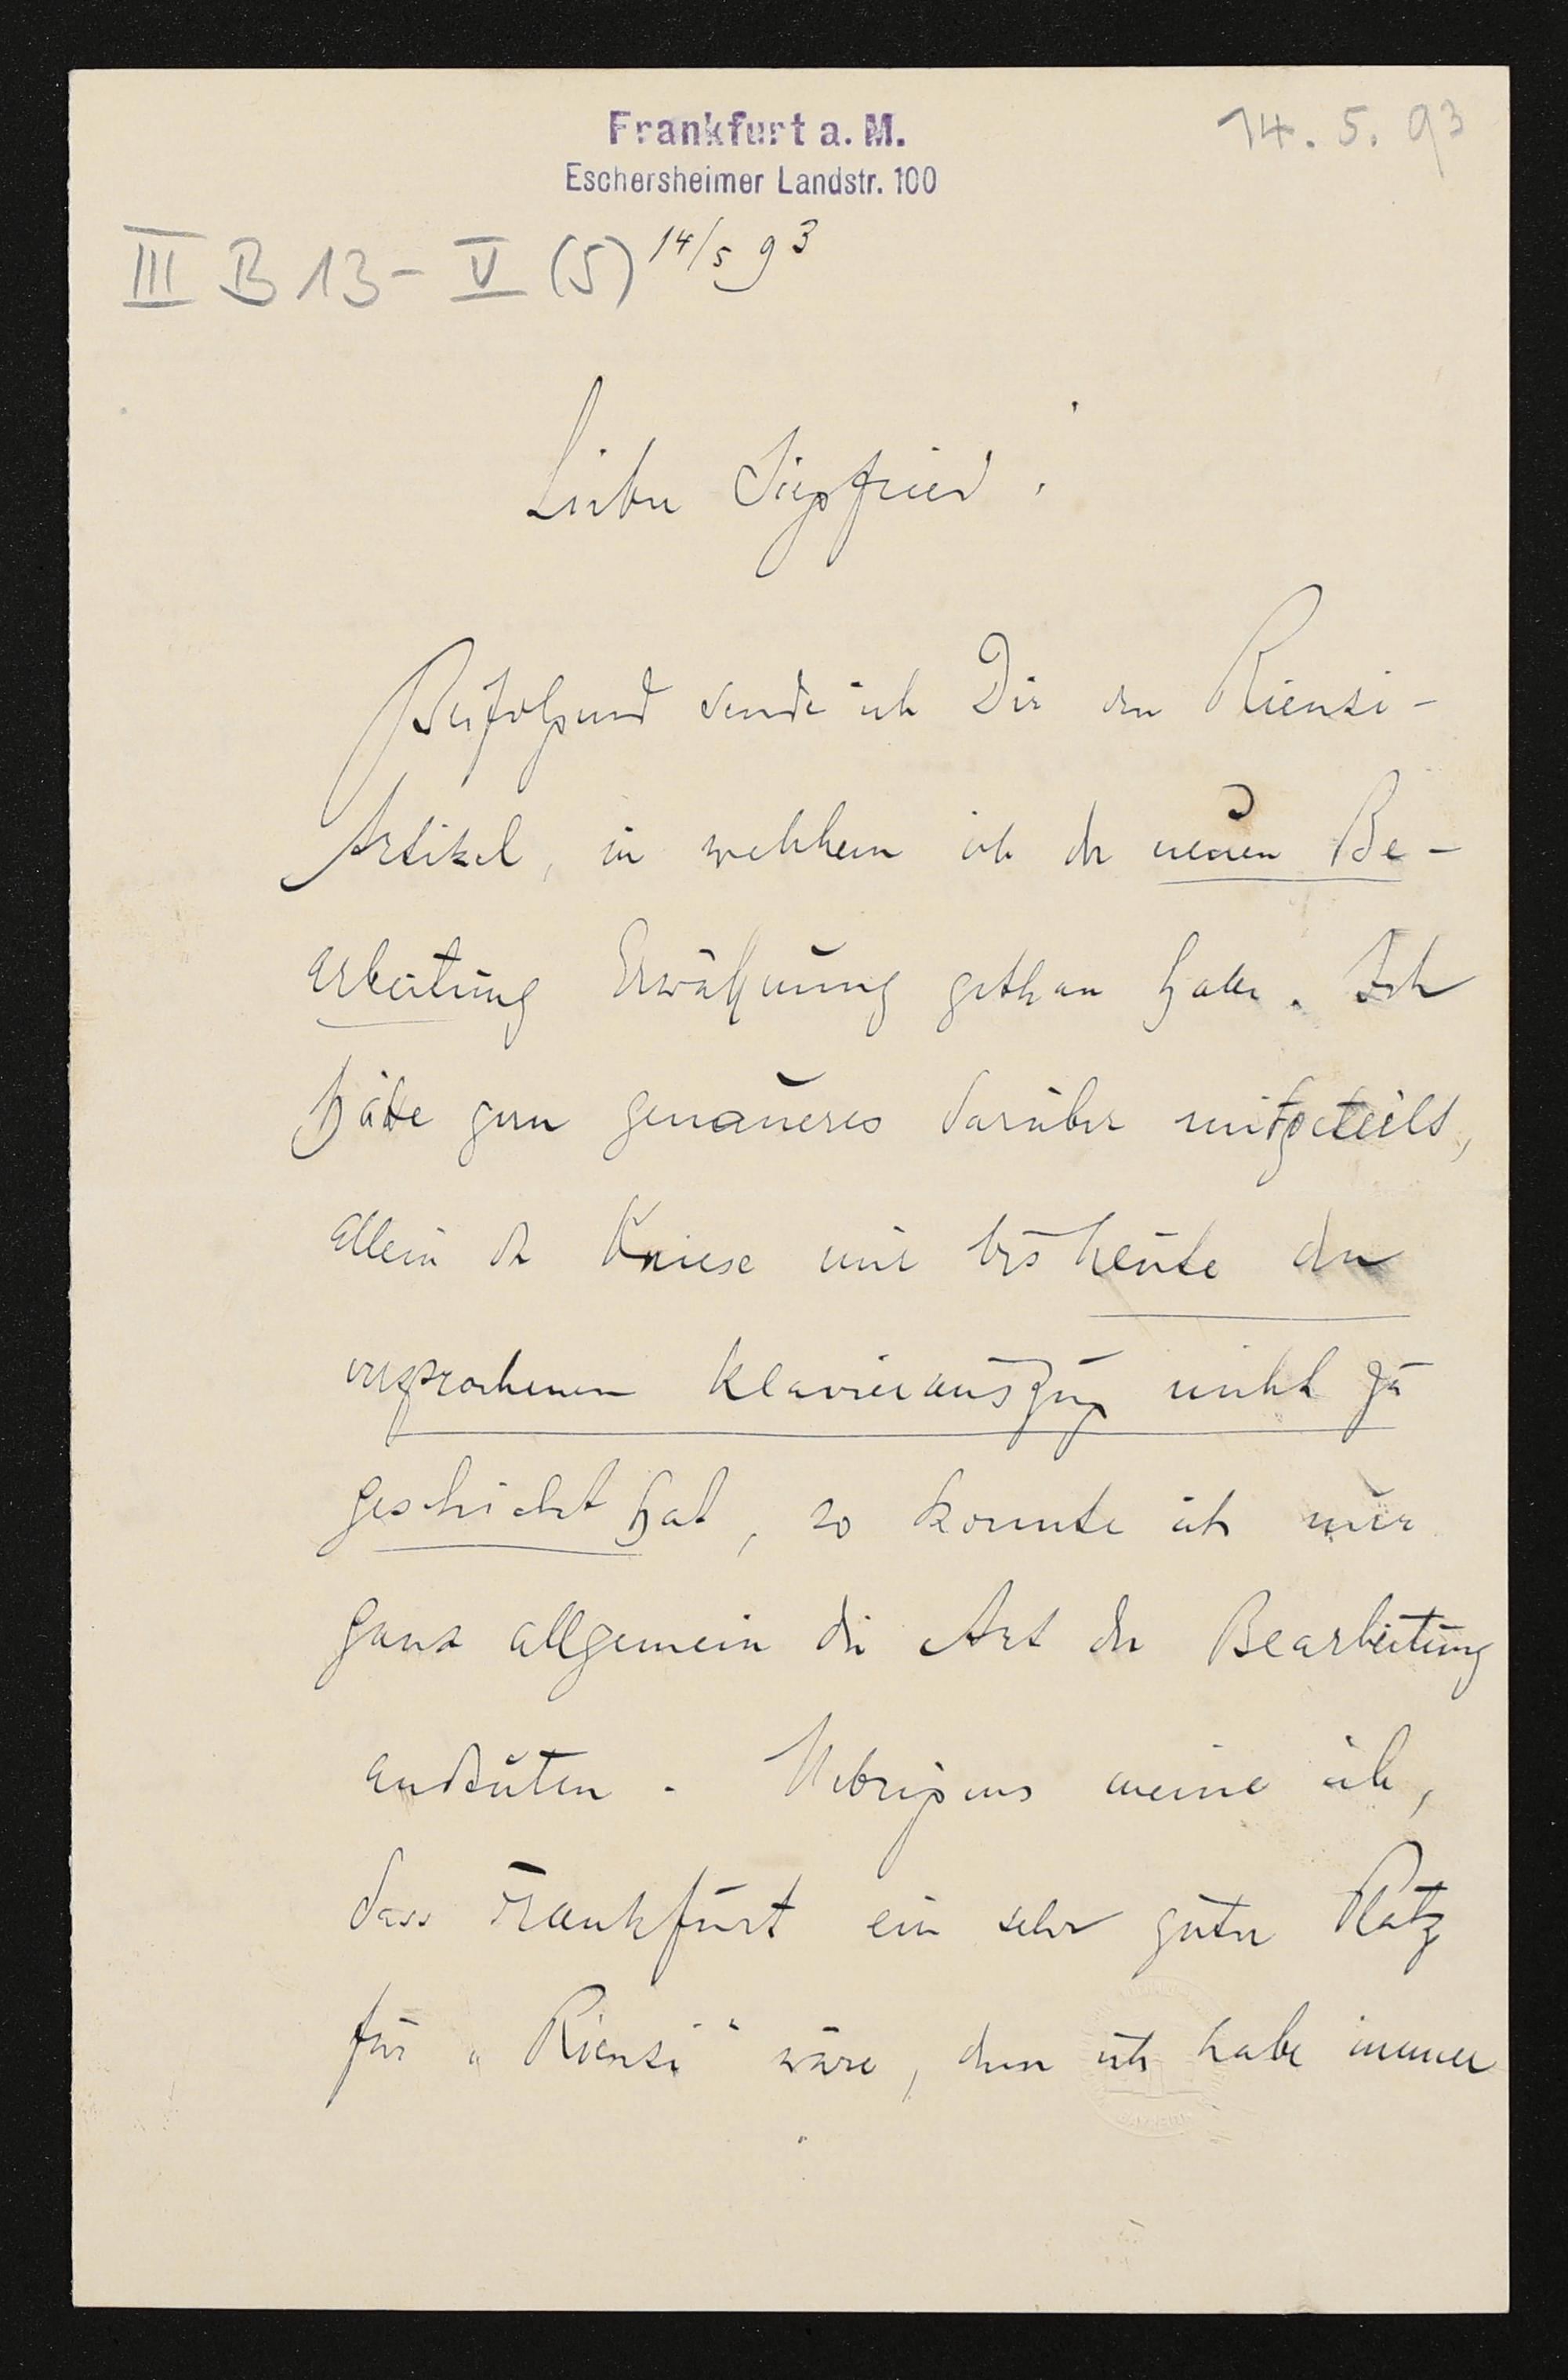 Frankfurt a. M.
14. 5. 93
Eschersheimer Landstr. 100
III B 13 - V (5) 14/5 93
Lieber Siegfried!
Beifolgend sende ich Dir den Rienzi-
Artikel, in welchem ich der neuen Be-
arbeitung Erwähnung gethan habe. Ich
hätte gern genaueres darüber mitgeteilt,
allein da Kniese mir bis heute den
versprochenen Klavierauszug nicht zu
geschickt hat, so konnte ich nur
ganz allgemein die Art der Bearbeitung
andeuten. Uebrigens meine ich,
dass Frankfurt ein sehr guter Platz
für „Rienzi" wäre, denn ich habe immer